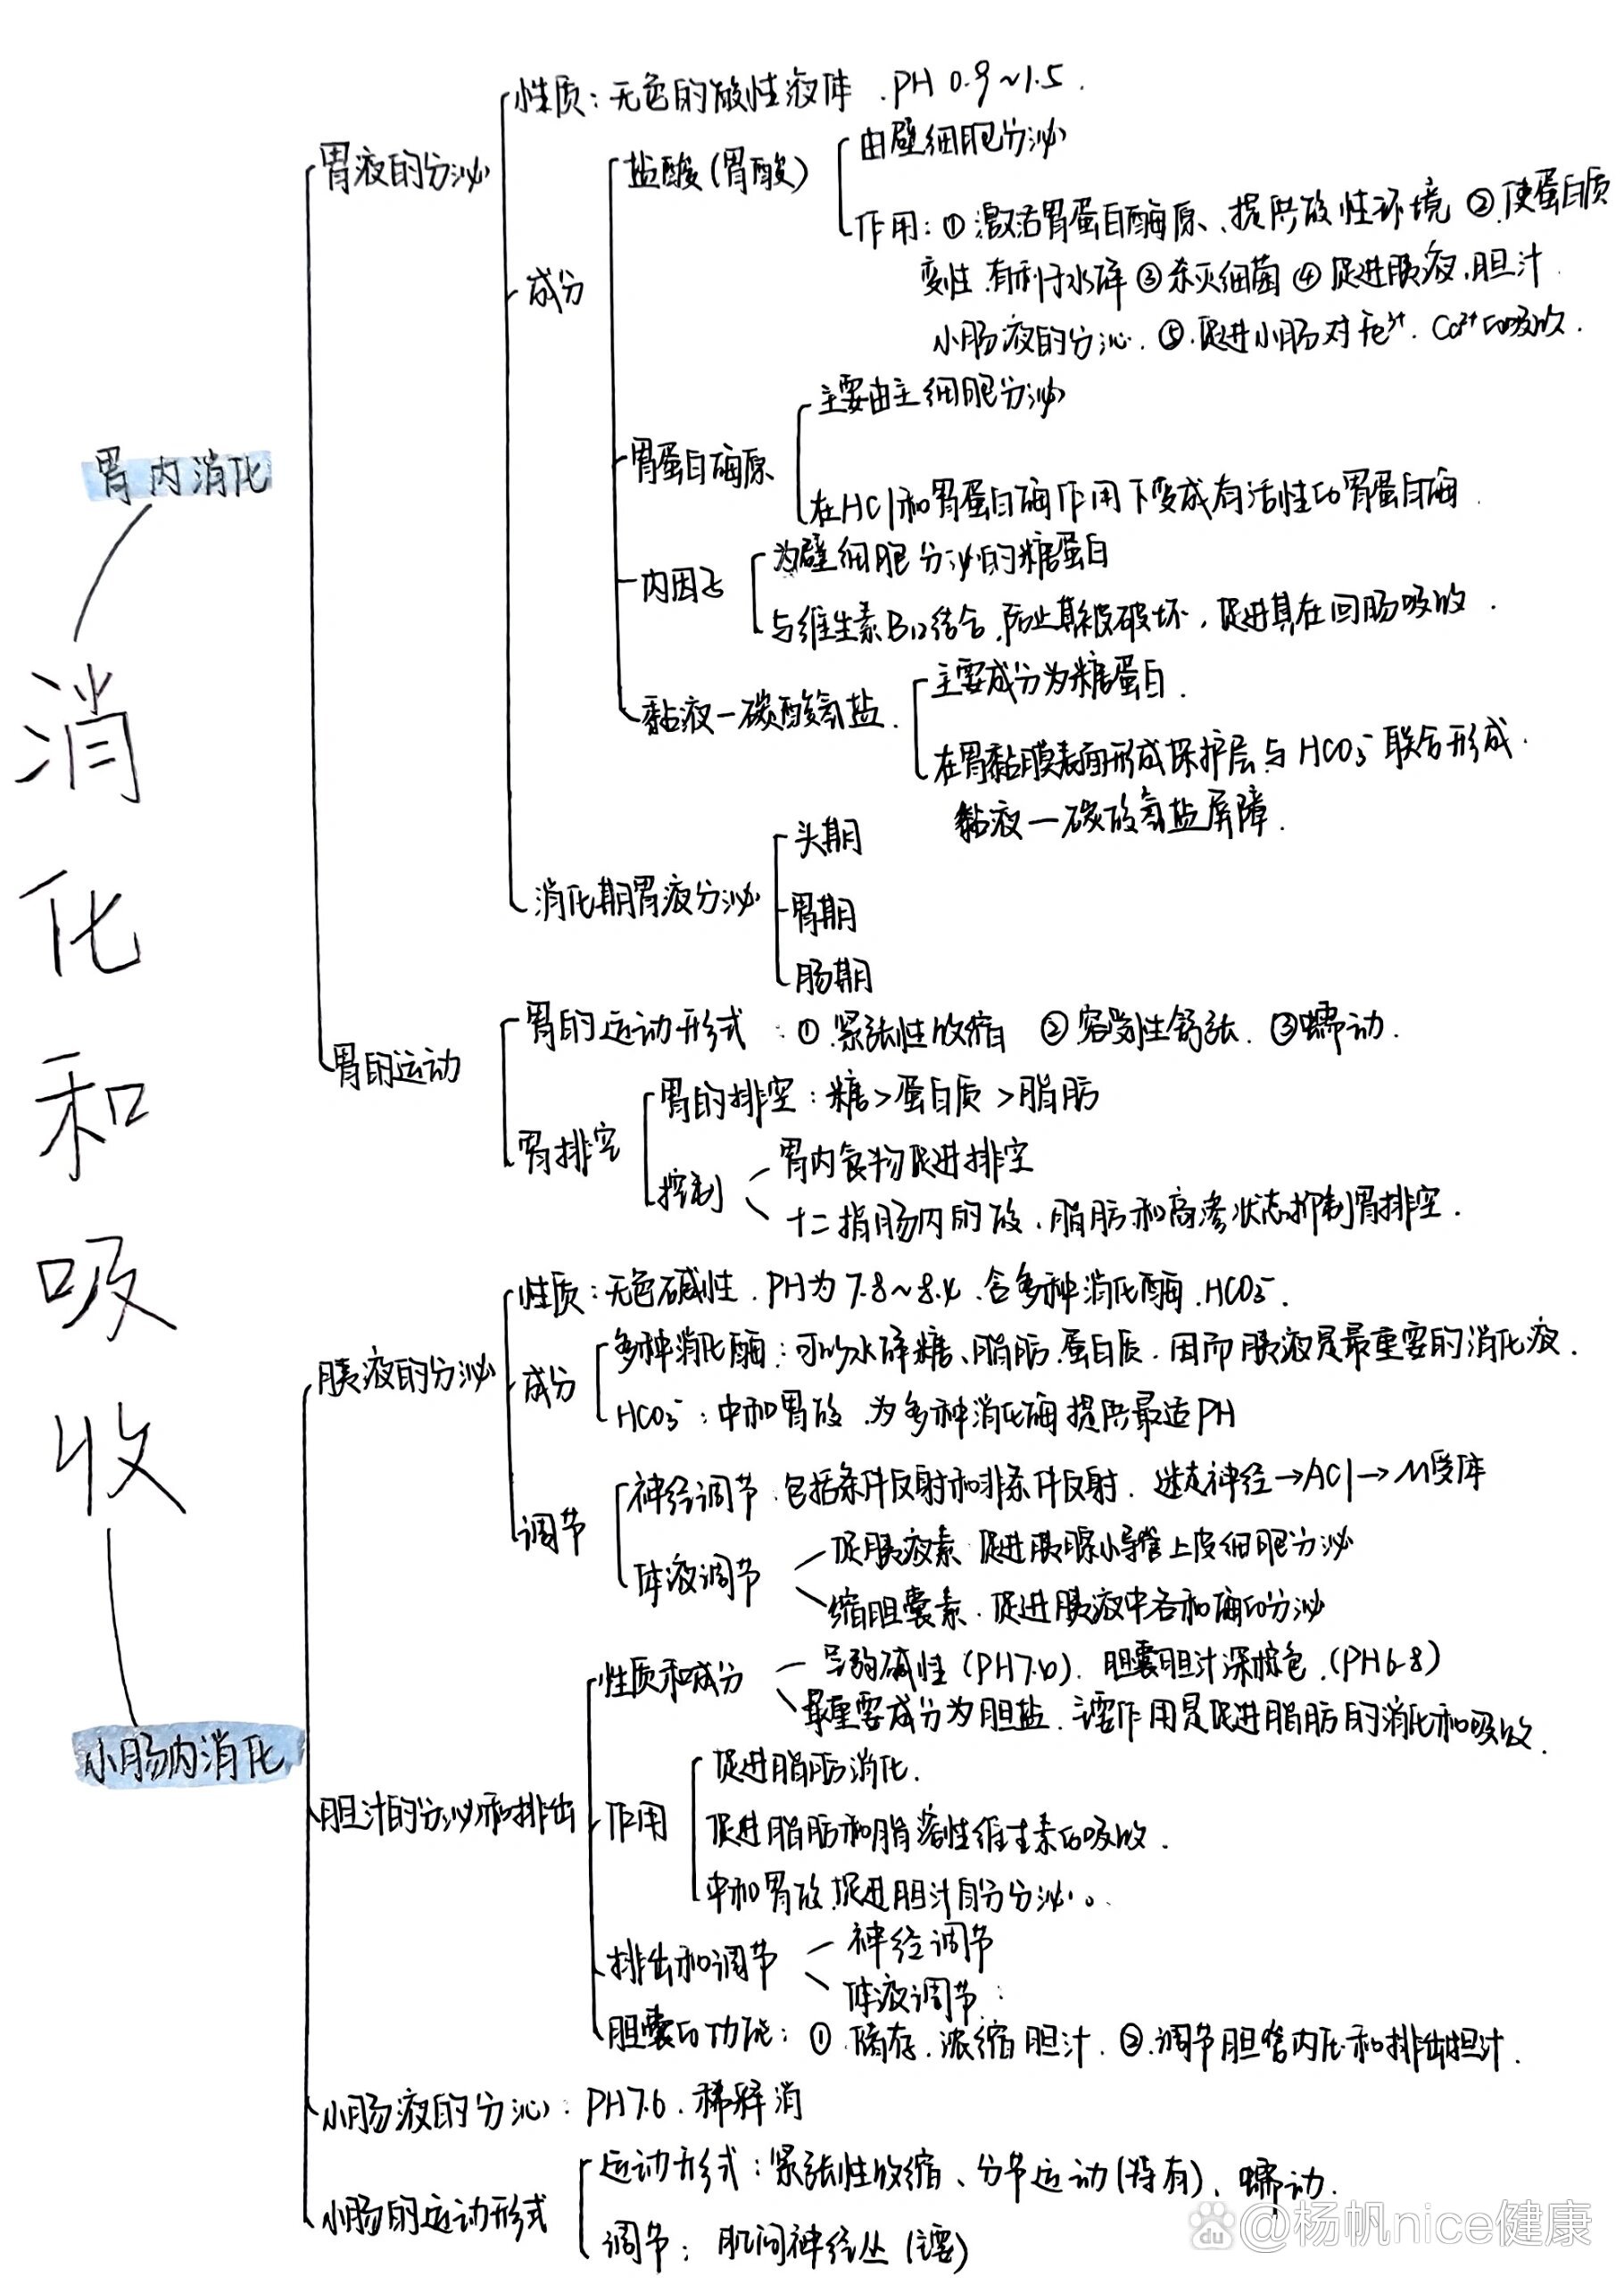 消化和吸收
胃内消化
胃液的分泌
性质：无色的酸性液体．PH 0.9~1.5．
成分
盐酸(胃酸)
由壁细胞分泌
作用：①激活胃蛋白酶原、提供酸性环境 ②使蛋白质
变性．有利于水解 ③杀灭细菌 ④促进胰液．胆汁
小肠液的分沁．⑤．促进小肠对Fe³⁺．Ca²⁺的吸收．
胃蛋白酶原
主要由主细胞分泌
在HCl和胃蛋白酶作用下变成有活性的胃蛋白酶
内因子
为壁细胞分泌的糖蛋白
与维生素B12结合．防止其被破坏，促进其在回肠吸收．
黏液－碳酸氢盐．
主要成分为糖蛋白．
在胃黏膜表面形成保护层．与HCO₃⁻联合形成．
黏液－碳酸氢盐屏障．
消化期胃液分泌
头期
胃期
肠期
胃的运动
胃的运动形式：①．紧张性收缩 ②容受性舒张．③蠕动．
胃排空
胃的排空：糖>蛋白质>脂肪
控制
胃内食物促进排空
十二指肠内的酸．脂肪和高渗状态抑制胃排空．
小肠内消化
胰液的分泌
性质：无色碱性．PH为7.8~8.4．含多种消化酶．HCO₃⁻．
成分
多种消化酶：可以水解糖、脂肪．蛋白质．因而胰液是最重要的消化液．
HCO₃⁻：中和胃酸．为多种消化酶提供最适PH
调节
神经调节．包括条件反射和非条件反射．迷走神经→ACl→M受体
体液调节
促胰液素．促进胰腺小导管上皮细胞分泌
缩胆囊素．促进胰液中各种酶的分泌
胆汁的分泌和排出
性质和成分
呈弱碱性(PH7.6)．胆囊胆汁深棕色．(PH6-8)
最重要成分为胆盐．主要作用是促进脂肪的消化和吸收．
作用
促进脂肪消化．
促进脂肪和脂溶性维生素的吸收．
中和胃酸．促进胆汁自分分泌。
排出和调节
神经调节
体液调节：
胆囊的功能：①．储存．浓缩胆汁．②．调节胆管内压和排出担汁．
小肠液的分沁：PH7.6．稀释消
小肠的运动形式
运动形式：紧张性收缩、分节运动(特有)、蠕动．
调节：肌间神经丛(主要)
du @杨帆nice健康